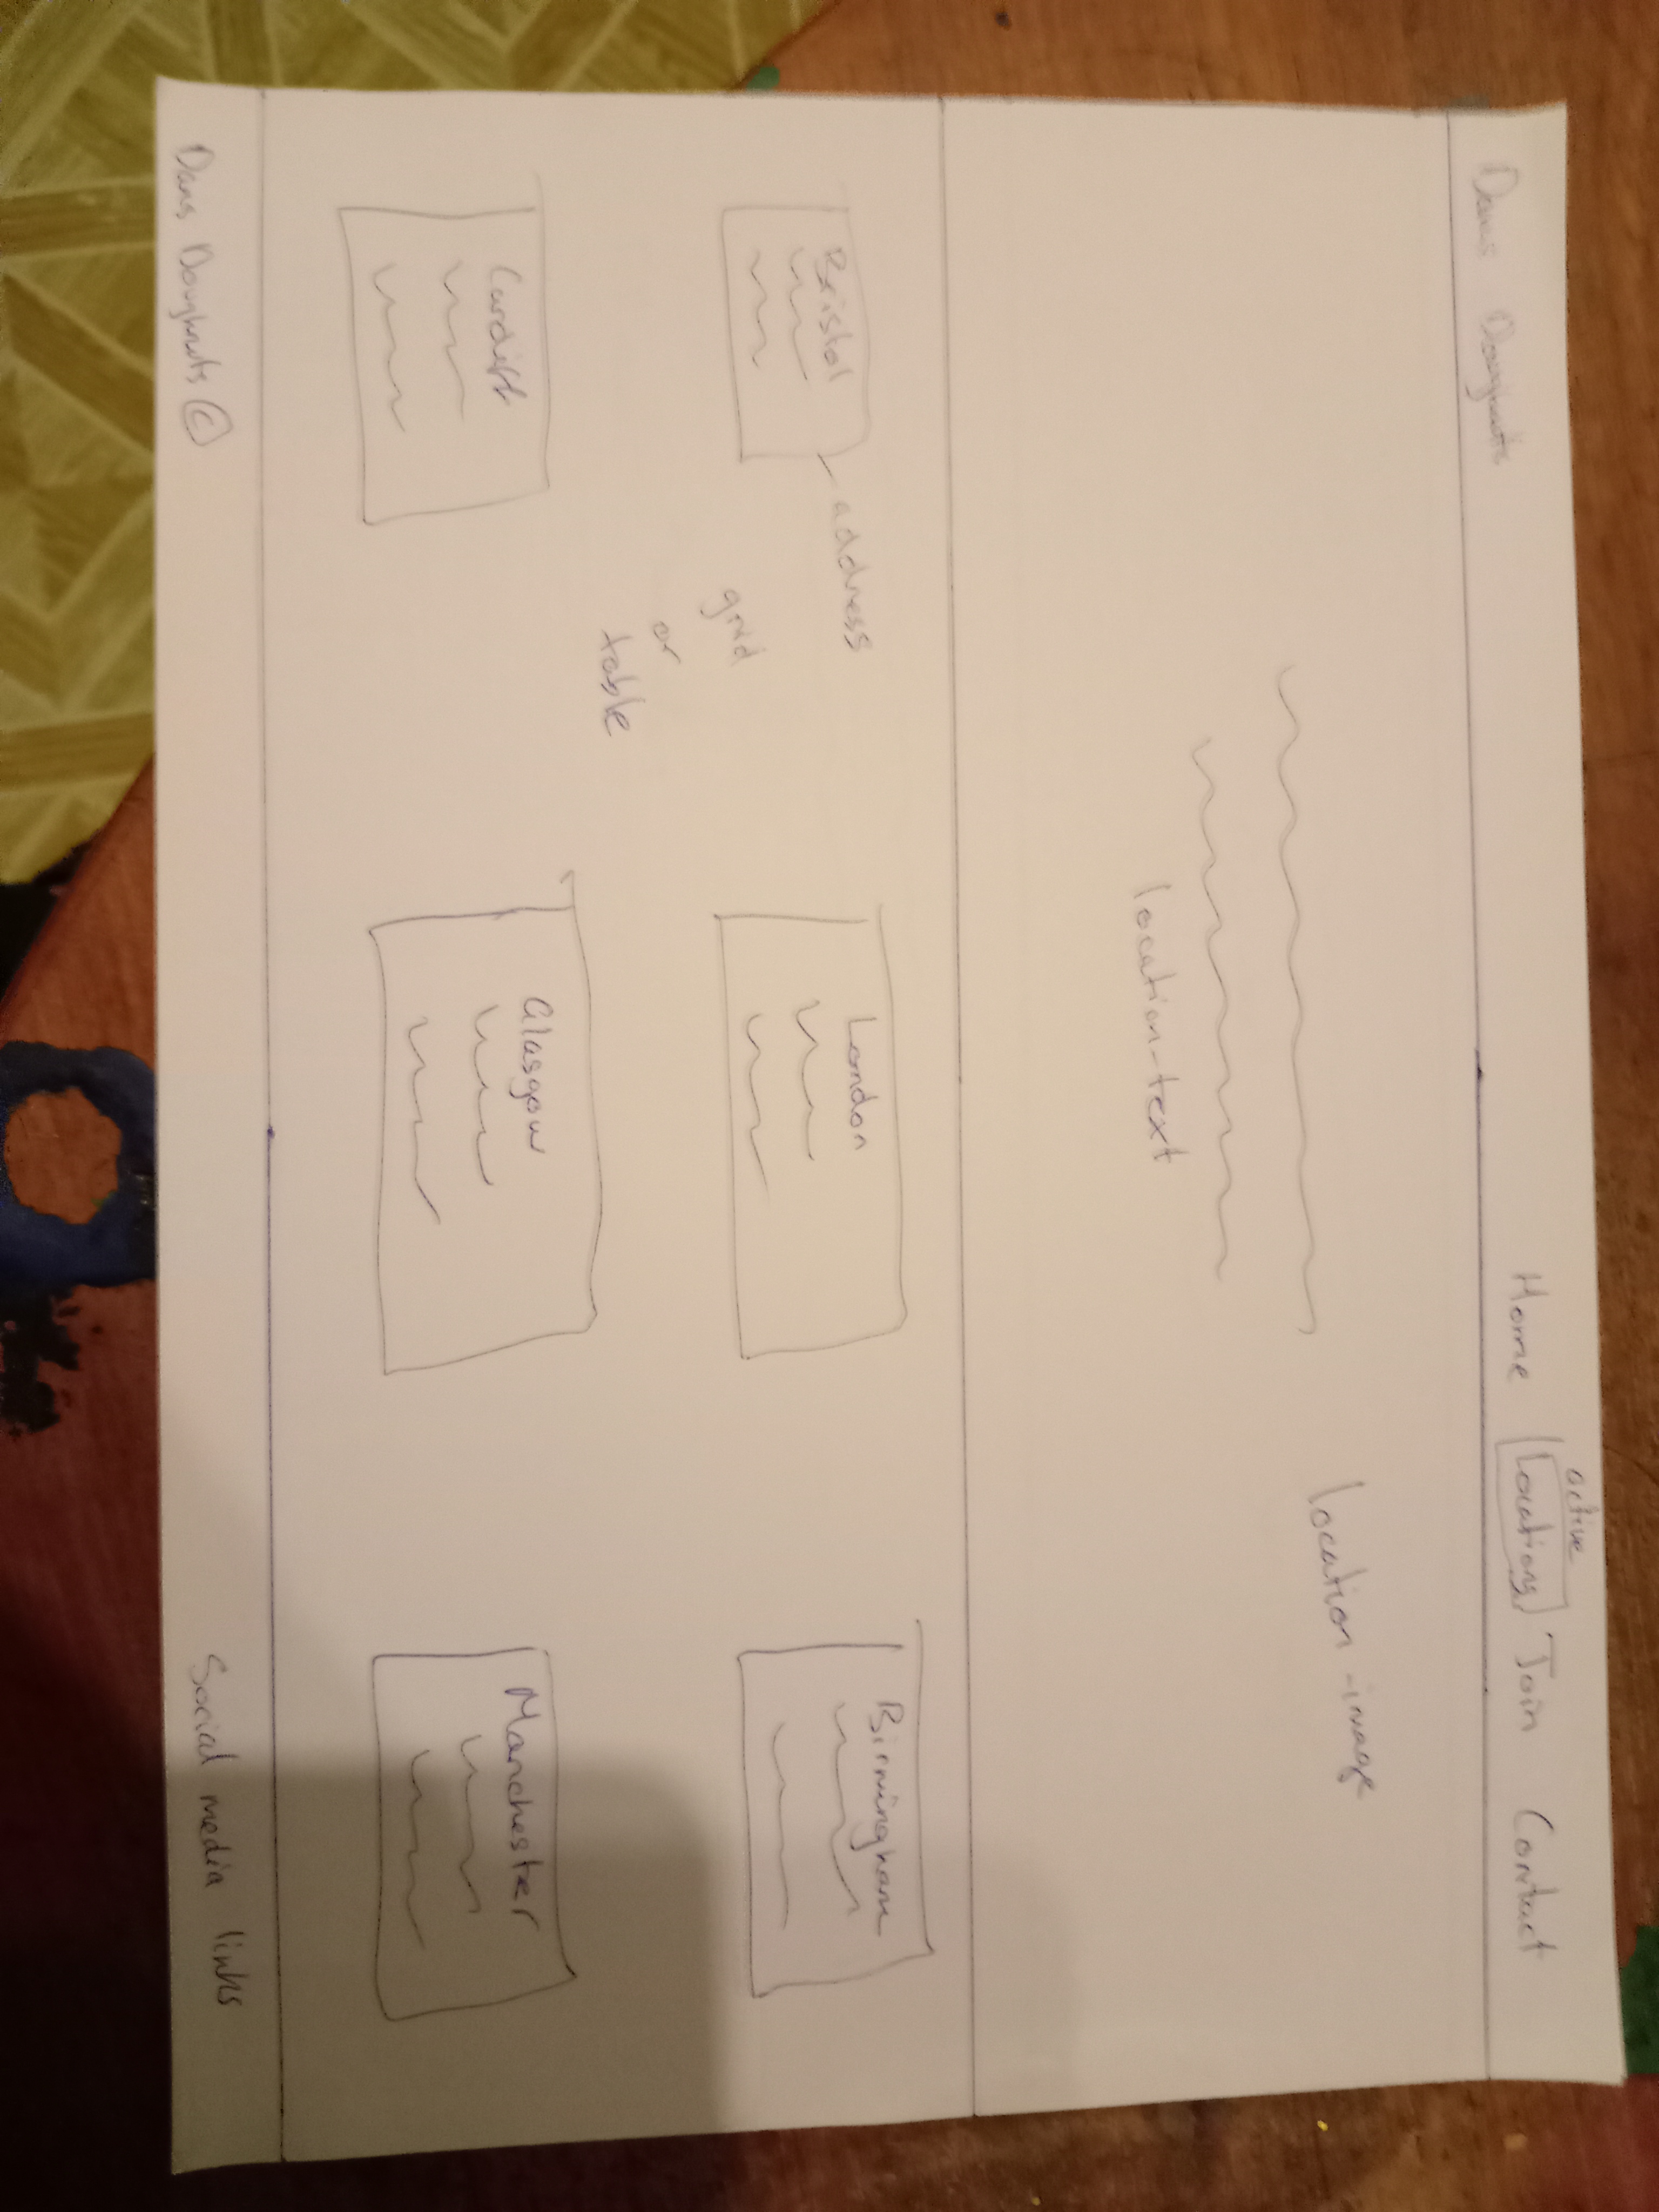 Dans Doughnuts
active
Home Locations Join Contact
location-image
location-text
Bristol
address
London
Birmingham
grid
or
table
Cardiff
Glasgow
Manchester
Dans Doughnuts ©
Social media links